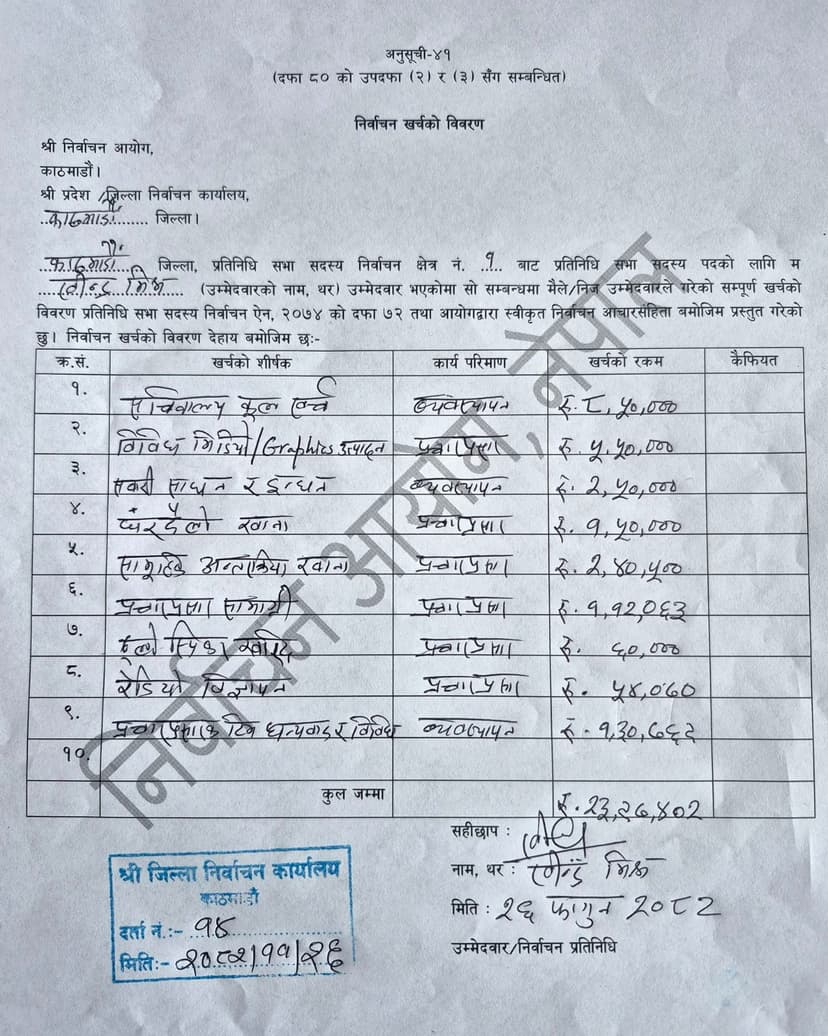 अनुसूची-४१
(दफा ८० को उपदफा (२) र (३) सँग सम्बन्धित)
निर्वाचन खर्चको विवरण
श्री निर्वाचन आयोग,
काठमाडौं।
श्री प्रदेश/जिल्ला निर्वाचन कार्यालय,
..काठमाडौं........ जिल्ला।
..काठमाडौं.... जिल्ला, प्रतिनिधि सभा सदस्य निर्वाचन क्षेत्र नं. ..१... बाट प्रतिनिधि सभा सदस्य पदको लागि म
....रवीन्द्र मिश्र..... (उम्मेदवारको नाम, थर) उम्मेदवार भएकोमा सो सम्बन्धमा मैले/निज उम्मेदवारले गरेको सम्पूर्ण खर्चको
विवरण प्रतिनिधि सभा सदस्य निर्वाचन ऐन, २०७४ को दफा ७२ तथा आयोगद्वारा स्वीकृत निर्वाचन आचारसंहिता बमोजिम प्रस्तुत गरेको
छु। निर्वाचन खर्चको विवरण देहाय बमोजिम छः-
क्र.सं. खर्चको शीर्षक कार्य परिमाण खर्चको रकम कैफियत
१. सचिवालय कूल खर्च व्यवस्थापन रु. ८,५०,०००
२. विविध भिडियो/Graphics उत्पादन प्रचारप्रसार रु. ५,५०,०००
३. सवारी साधन र इन्धन व्यवस्थापन रु. २,५०,०००
४. घरदैलो खाना प्रचारप्रसार रु. १,५०,०००
५. सामूहिक अन्तरक्रिया खाना प्रचारप्रसार रु. २,४०,५००
६. प्रचारप्रसार सामाग्री प्रचारप्रसार रु. १,१२,०६३
७. स्पिकर खरिद प्रचारप्रसार रु. ६०,०००
८. रेडियो विज्ञापन प्रचारप्रसार रु. ५४,०७०
९. प्रचारप्रसारक टिम धन्यवाद र विविध व्यवस्थापन रु. १,३०,७६६
१०.
कुल जम्मा रु. २३,२७,४०२
सहीछाप :
नाम, थर : रवीन्द्र मिश्र
मिति : २६ फागुन २०८२
उम्मेदवार/निर्वाचन प्रतिनिधि
श्री जिल्ला निर्वाचन कार्यालय
काठमाडौं
दर्ता नं.:- १४
मितिः- २०८२/११/२६
निर्वाचन आयोग, नेपाल